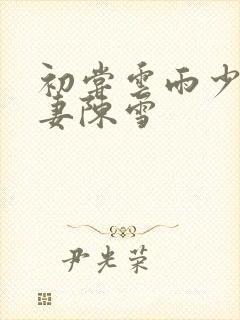 初尝雲雨少
妻陳雪
尹光荣